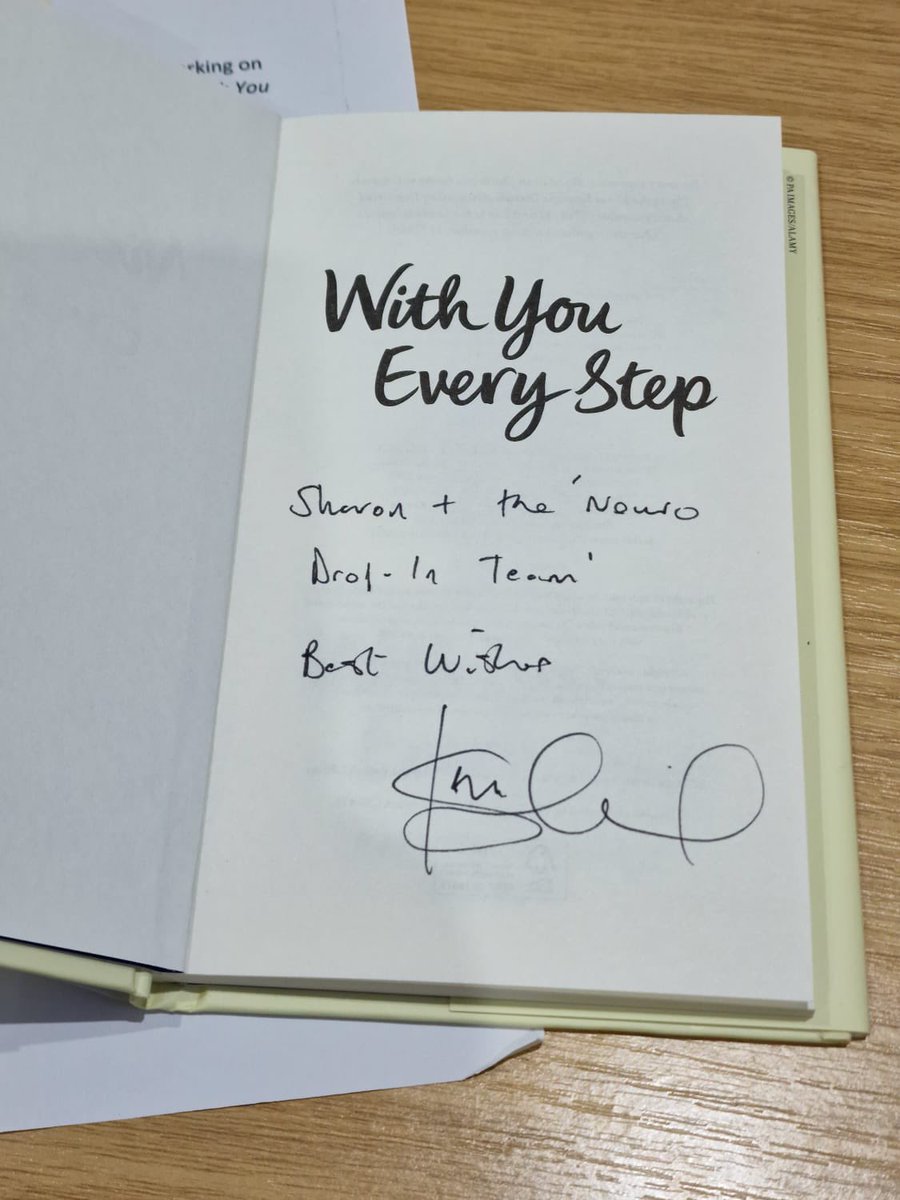 rking on
You
© PA IMAGES/ALAMY
With You
Every Step
Sharon + the 'Neuro
Drop-In Team'
Best Wishes